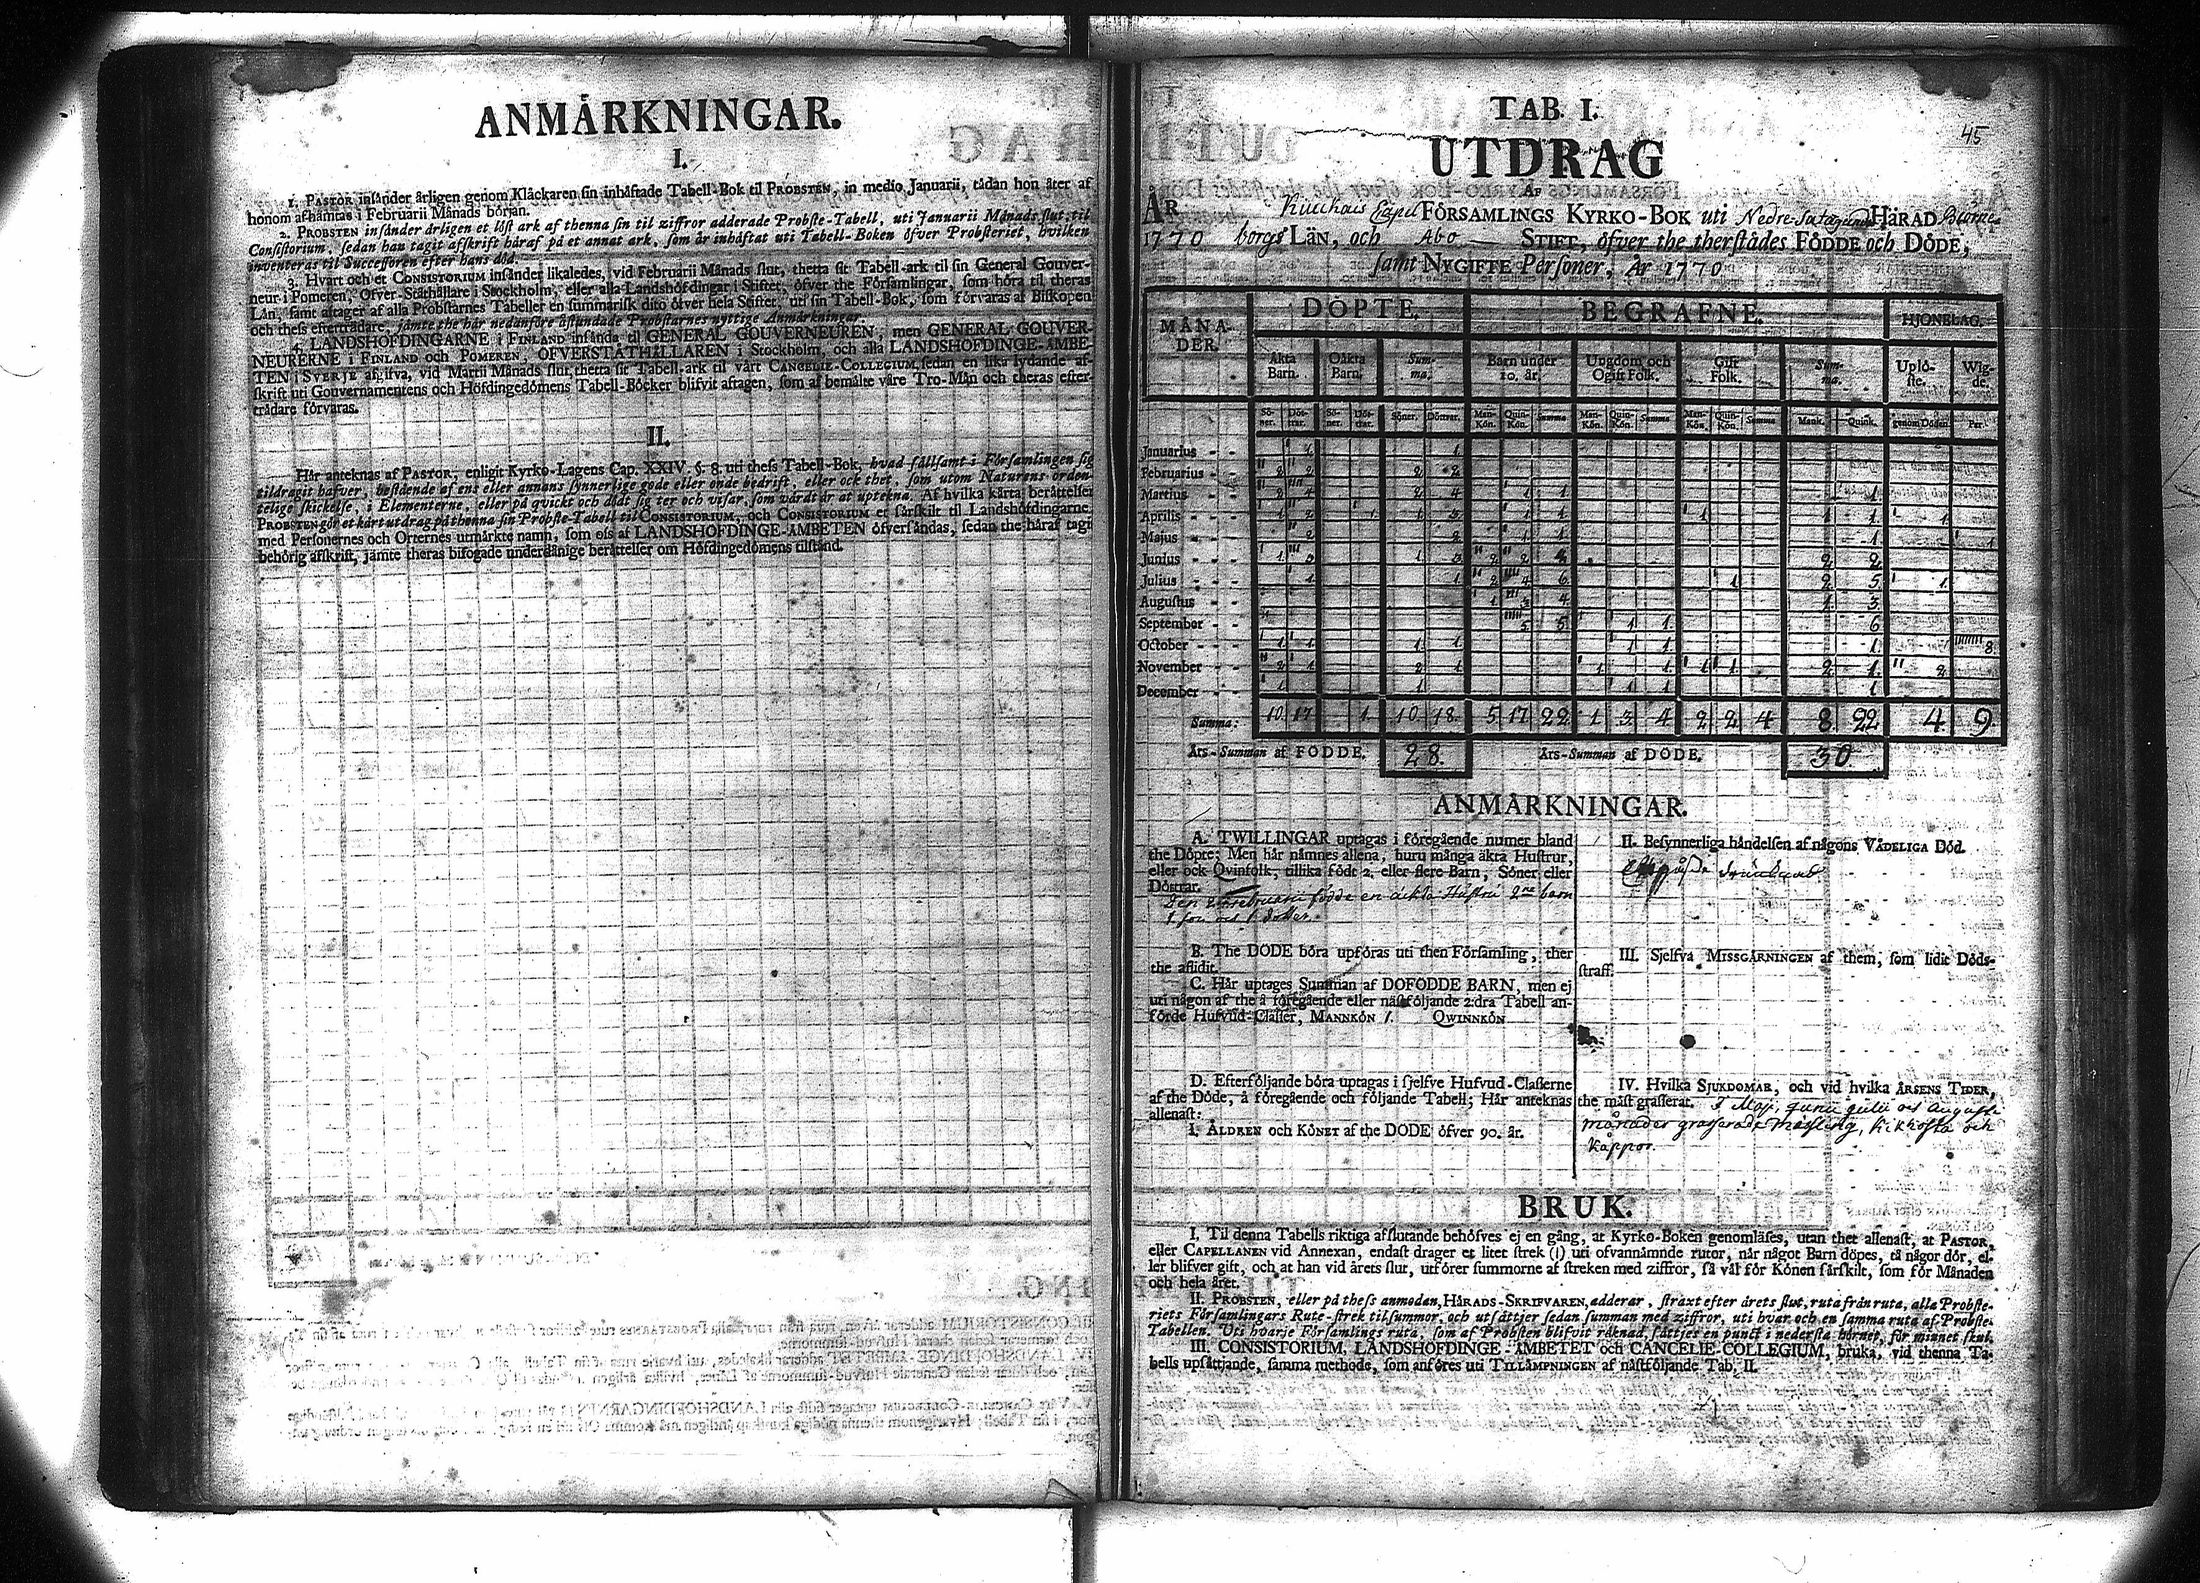 ANMÅRKNINGAR.
I.
1. PASTOR insånder årligen genom Klåckaren sin inhåftade Tabell-Bok til PROBSTEN, in medio Januarii, tådan hon åter af
honom afhåmtas i Februarii Månads början.
2. PROBSTEN insånder årligen et låst ark af thenna sin til ziffror adderade Probste-Tabell, uti Januarii Månads slut, til
Consistorium, sedan han tagit afskrift håraf på et annat ark, som år inhåftat uti Tabell-Boken öfver Probsteriet, hvilken
inventeras til Successoren efter hans död.
3. Hvart och et CONSISTORIUM insånder likaledes, vid Februarii Månads slut, thetta sit Tabell-ark til sin General Gouver-
neur i Pomeren, Öfver-Ståthållare i Stockholm, eller alla Landshöfdingar i Stiftet, öfver the Församlingar, som höra til theras
Lån, samt aftager af alla Probstarnes Tabeller en summarisk dito öfver hela Stiftet, uti sin Tabell-Bok, som förvaras af Biskopen
och thess efterträdare, jämte the hår nedanföre åstundade Probstarnes nyttige Anmårkningar.
4. LANDSHÖFDINGARNE i FINLAND insånda til GENERAL GOUVERNEUREN; men GENERAL GOUVER-
NEURERNE i FINLAND och POMEREN, ÖFVERSTÅTHÅLLAREN i Stockholm, och alla LANDSHÖFDINGE-ÅMBE-
TEN i SVERJE afgifva, vid Martii Månads slut, thetta sit Tabell-ark til vårt CANCELIE-COLLEGIUM, sedan en lika lydande af-
skrift uti Gouvernamentens och Höfdingedömens Tabell-Böcker blifvit aftagen, som af bemålte våre Tro-Mån och theras efter-
trådare förvaras.
II.
Hår anteknas af PASTOR, enligit Kyrko-Lagens Cap. XXIV. §. 8. uti thess Tabell-Bok, hvad sållsamt i Församlingen sig
tildragit hafver, bestående af ens eller annans synnerlige gode eller onde bedrift, eller ock thet, som utom Naturens orden-
telige skickelse, i Elementerne, eller på qvickt och dödt sig ter och visar, som vårdt år at uptekna. Af hvilka kårta beråttelser
PROBSTEN gör et kårt utdrag på thenna sin Probste-Tabell til CONSISTORIUM, och CONSISTORIUM et sårskilt til Landshöfdingarne,
med Personernes och Orternes utmårkte namn, som oss af LANDSHÖFDINGE-ÅMBETEN öfversåndas, sedan the håraf tagit
behörig afskrift, jämte theras bifogade underdånige beråttelser om Höfdingedömens tilstånd.
45
TAB. I.
UTDRAG
AF
ÅR
FÖRSAMLINGS KYRKO-BOK uti Nedre Satagunda HÅRAD Biörne-
1770 borgs LÄN, och Åbo STIFT, öfver the therstådes FÖDDE och DÖDE,
samt NYGIFTE Personer, År 1770
MÅNA-
DER.
DÖPTE.
BEGRAFNE.
HJONELAG.
Åkta Barn.
Oåkta Barn.
Sum-
ma.
Barn under 10. år.
Ungdom och Ogift Folk.
Gift Folk.
Sum-
ma.
Uplö-
ste.
Wig-
de.
Sö-
ner. Döt-
trar. Sö-
ner. Döt-
trar. Söner. Döttrar. Man-
Kön. Quin-
Kön. Summa Man-
Kön. Quin-
Kön. Summa Man-
Kön. Quin-
Kön. Summa Mank. Quink. genom Döden Par.
Januarius 1 1
Februarius 2 2 2 2
Martius 2 4 2 4 1 1 1
Aprilis 1 2 1 1 3 1 1 1 1 1 1
Majus 2 2 1 1 1 1
Junius 1 3 1 3 2 2 4 2 2
Julius 1 1 2 4 6 1 2 5 1
Augustus 1 3 4 1 3
September 5 5 1 1 6
October 1 1 1 1 1 1 1 8
November 2 1 2 1 1 1 1 1 2 1 2
December 1 1 1 1 1
Summa: 10 17 1 10 18 5 17 22 1 3 4 2 2 4 8 22 4 9
Års-Summan af FÖDDE. 28. Års-Summan af DÖDE. 30
ANMÅRKNINGAR.
A. TWILLINGAR uptagas i föregående numer bland
the Döpte: Men hår nåmnes allena, huru många åkta Hustrur,
eller ock Qvinfolk, tillika födt 2. eller flere Barn, Söner eller
Döttrar.
Februarii födde en äckta Hustru 2ne barn
1 son och 1 dotter.
B. The DÖDE böra upföras uti then Församling, ther
the aflidit.
C. Hår uptages Summan af DÖFÖDDE BARN, men ej
uti någon af the å föregående eller nåstföljande 2:dra Tabell an-
förde Hufvud-Classer, MANNKÖN 1. QWINNKÖN
D. Efterföljande böra uptagas i sjelfve Hufvud-Classerne
af the Döde, å föregående och följande Tabell; Hår anteknas
allenast:
I. ÅLDREN och KÖNET af the DÖDE öfver 90. år.
II. Besynnerliga håndelsen af någons VÅDELIGA Död.
III. Sjelfva MISSGÅRNINGEN af them, som lidit Döds-
straff.
IV. Hvilka SJUKDOMAR, och vid hvilka ÅRSENS TIDER,
the måst grasserat. I Maji, Junii Julii och Augusti
månader grasserade Mässling, Kikhosta och
Kåppor.
BRUK.
I. Til denna Tabells riktiga afslutande behöfves ej en gång, at Kyrko-Boken genomlåses, utan thet allenast, at PASTOR,
eller CAPELLANEN vid Annexan, endast drager et litet strek (1) uti ofvannåmnde rutor, når något Barn döpes, tå någor dör, el-
ler blifver gift, och at han vid årets slut, utförer summorne af streken med ziffror, så vål för Könen sårskilt, som för Månaden
och hela året.
II. PROBSTEN, eller på thess anmodan, HÅRADS-SKRIFVAREN, adderar, straxt efter årets slut, ruta från ruta, alla Probste-
riets Församlingars Rute-strek tilsummor, och utsåttjer sedan summan med ziffror, uti hvar och en samma ruta af Probste-
Tabellen. Uti hvarje Församlings ruta, som af Probsten blifvit råknad, såttjes en punct i nedersta hörnet, för minnet skul.
III. CONSISTORIUM, LANDSHÖFDINGE-ÅMBETET och CANCELIE-COLLEGIUM, bruka, vid thenna Ta-
bells upsåttjande, samma methode, som anföres uti TILLÅMPNINGEN af nåstföljande Tab. II.